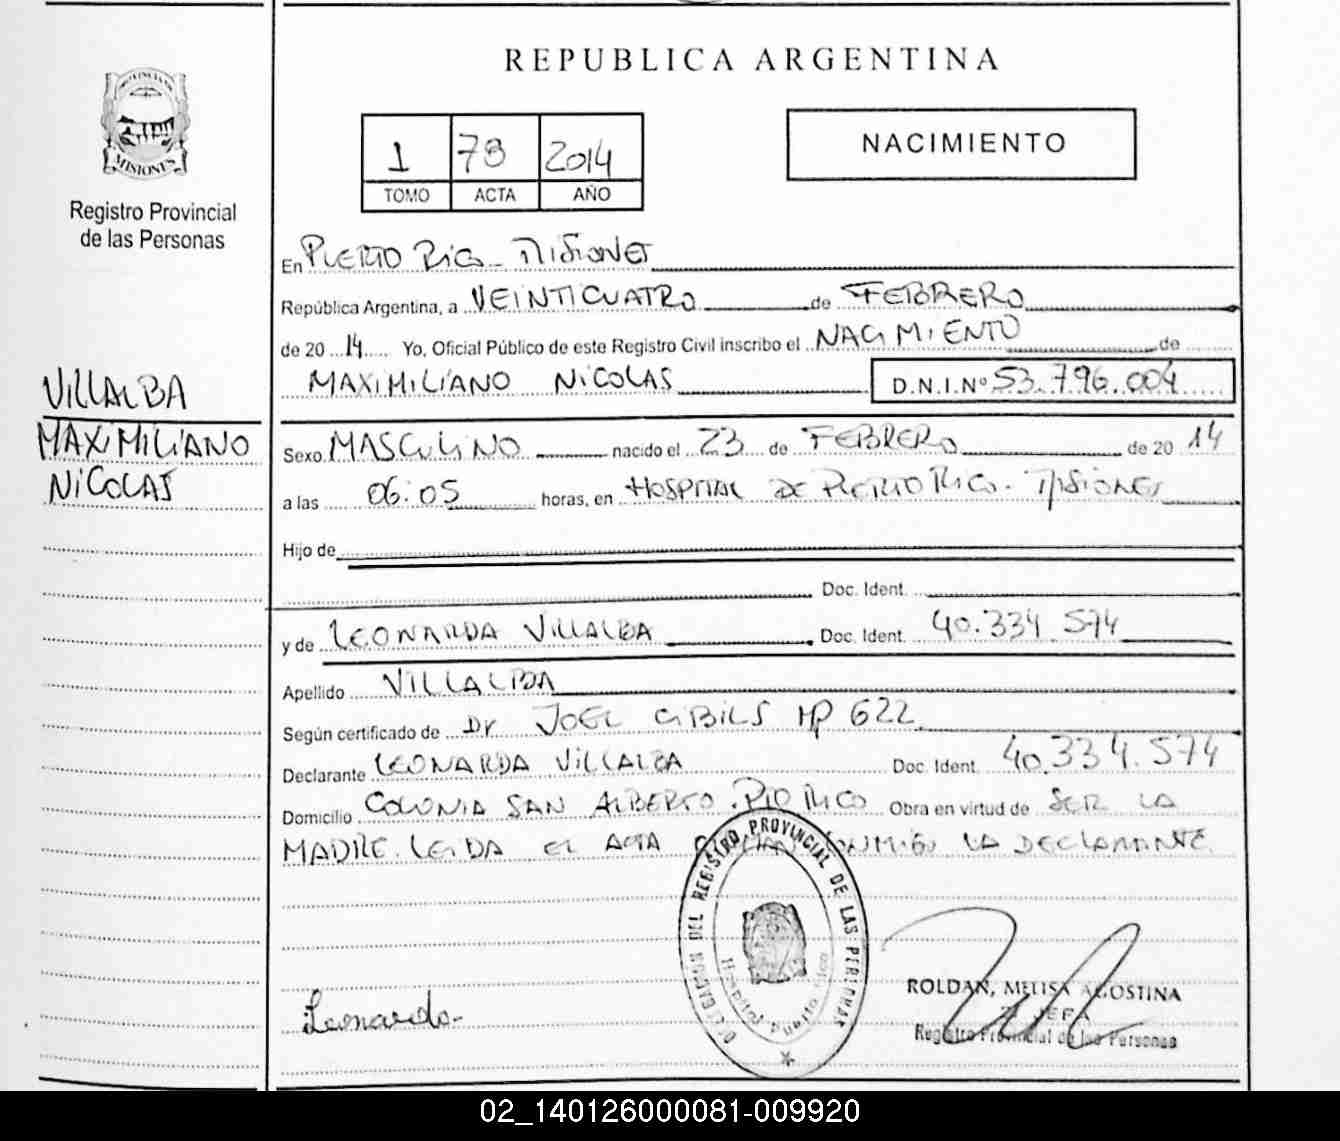 REPUBLICA ARGENTINA
PROVINCIA DE
MISIONES
Registro Provincial
de las Personas
1 78 2014
TOMO ACTA AÑO
NACIMIENTO
En PUERTO RICO - MISIONES
República Argentina, a VEINTICUATRO de FEBRERO
de 20 14 Yo, Oficial Público de este Registro Civil inscribo el NACIMIENTO de
MAXIMILIANO NICOLAS D.N.I.Nº 53.796.004
VILLALBA
MAXIMILIANO
NICOLAS
Sexo MASCULINO nacido el 23 de FEBRERO de 20 14
a las 06:05 horas, en HOSPITAL DE PUERTO RICO. MISIONES
Hijo de
Doc. Ident.
y de LEONARDA VILLALBA Doc. Ident. 40.334.574
Apellido VILLALBA
Según certificado de Dr JOEL CIBILS MP 622
Declarante LEONARDA VILLALBA Doc. Ident. 40.334.574
Domicilio COLONIA SAN ALBERTO. PTO RICO Obra en virtud de SER LA
MADRE. LEIDA EL ACTA LA DECLARANTE.
DEL REGISTRO PROVINCIAL DE LAS PERSONAS
Hospital Puerto Rico
Leonarda
ROLDAN, MELISA AGOSTINA
JEFA
Registro Provincial de las Personas
02_140126000081-009920